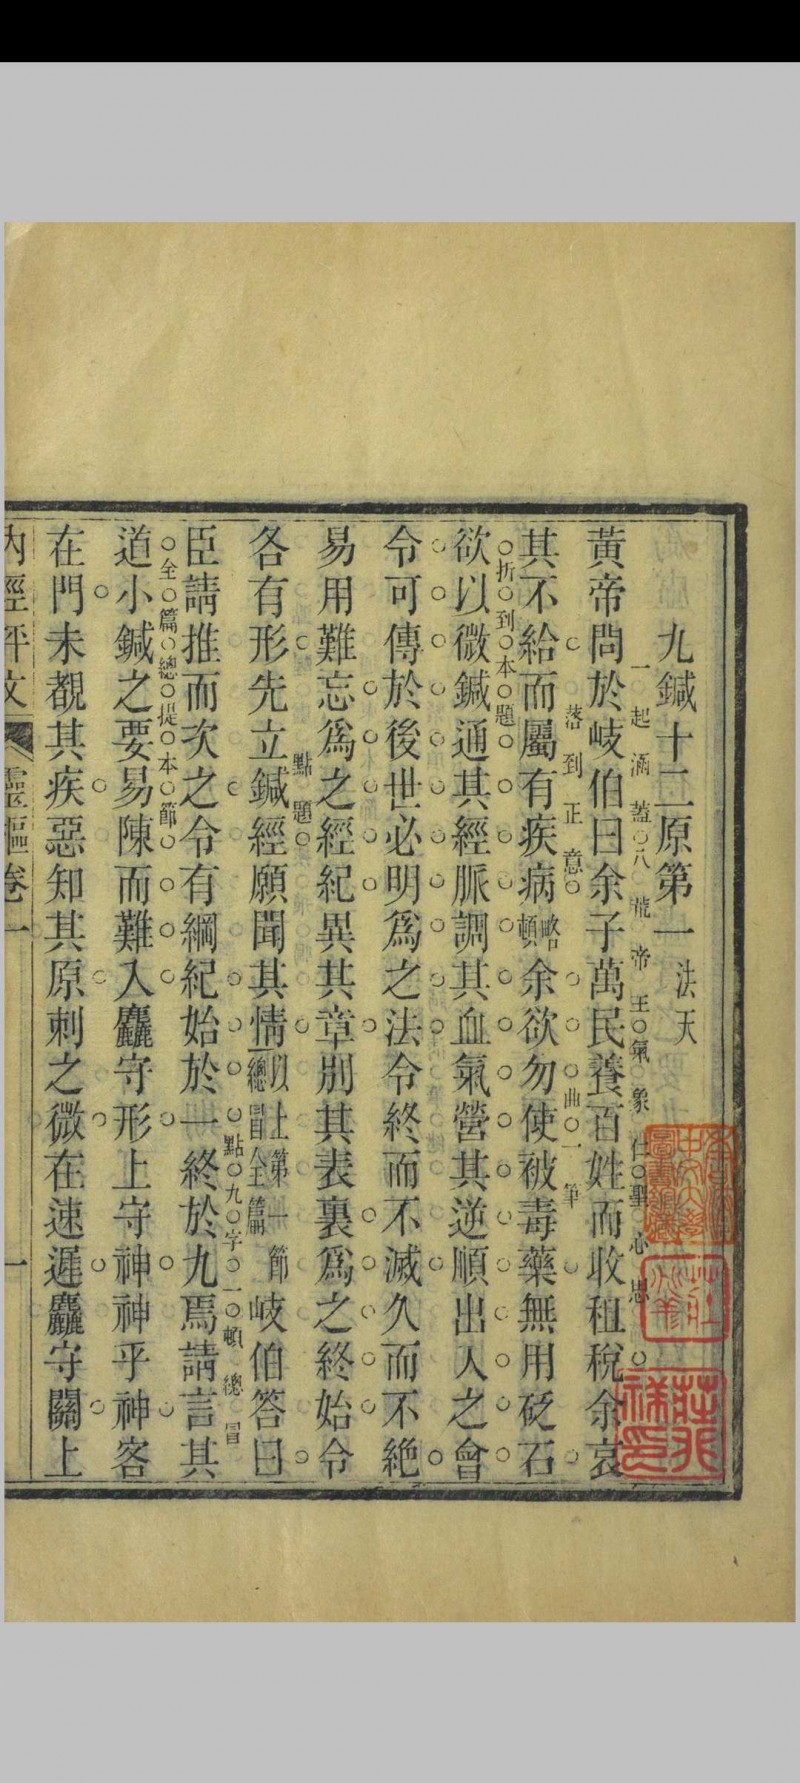 九鍼十二原第一法天
一起涵蓋八荒帝王氣象仕聖心思
黃帝問於岐伯曰余子萬民養百姓而收租稅余哀
落到正意曲一筆
其不給而屬有疾病略頓余欲勿使被毒藥無用砭石
折到本題
欲以微鍼通其經脈調其血氣營其逆順出入之會
令可傳於後世必明為之法令終而不滅久而不絕
易用難忘為之經紀異其章別其表裏為之終始令
點題
各有形先立鍼經願聞其情以上第一節總冒全篇岐伯答曰
點九字一頓總冒
臣請推而次之令有綱紀始於一終於九焉請言其
全篇總提本節
道小鍼之要易陳而難入麤守形上守神神乎神客
在門未覩其疾惡知其原刺之微在速遲麤守關上
內經評文 靈樞卷一 一